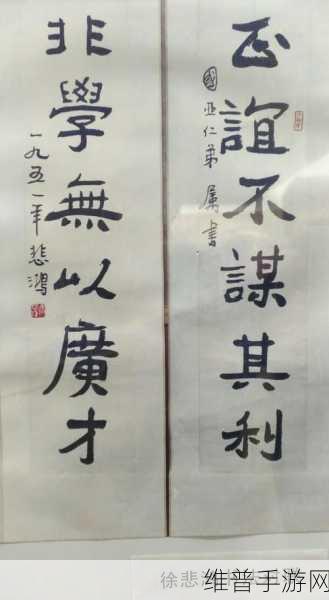 正誼不謀其利
國亚仁弟屬書
非學無以廣才
一九五一年悲鴻
徐悲
维普手游网